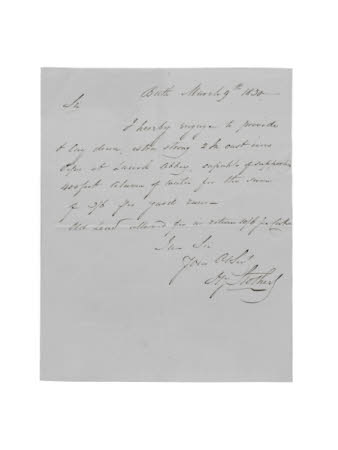 Bath March 9th 1830
Sir
I hereby engage to provide
& lay down, extra strong 2 In cast iron
Pipes at Lacock Abbey, capable of supporting
feet column of water for the sum
of 3/6 per yard
old Lead allowed for in return
I am Sir
Your Obt
Stothert